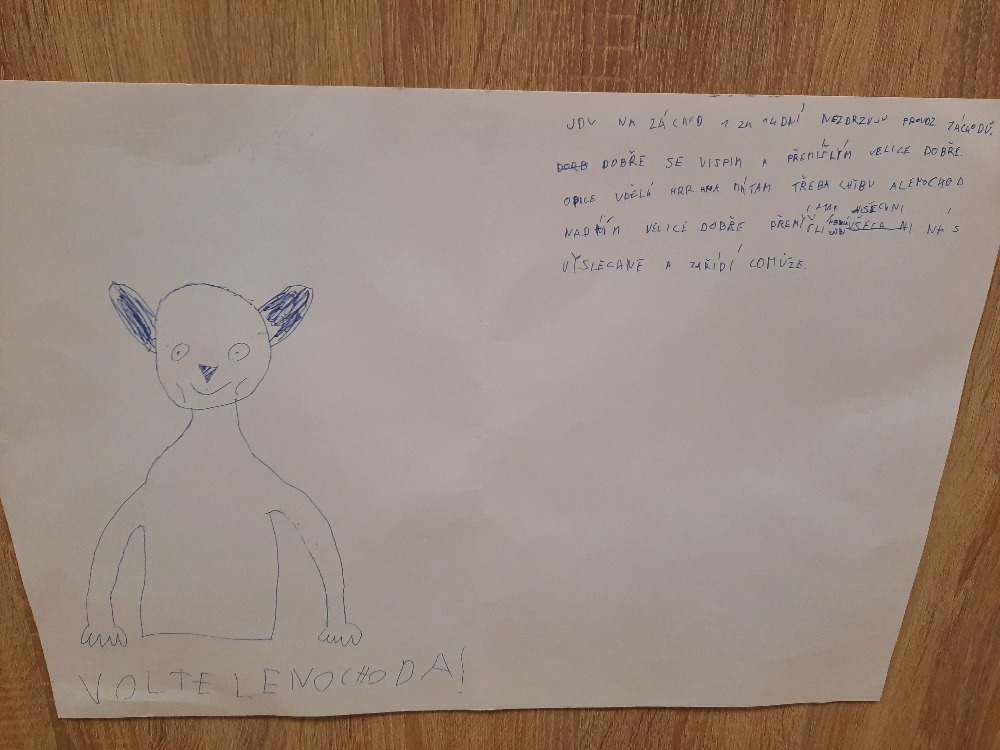 JDU NA ZÁCHOD 1 ZA 14 DNÍ NEZDRZUJU PROVOZ ZÁCHODŮ.
DOBŘE SE VISPIM A PŘEMÍŠLÝM VELICE DOBŘE.
OPICE UDĚLÁ HRR NA NÁ TAM TŘEBA CHIBU ALENOCHOD
MÁ VŠECHNI
NAD TÍM VELICE DOBŘE PŘEMÍŠLÍ NÁS
VYSLECHNE A ZAŘÍDÍ COMŮŽE.
VOLTE LENOCHODA!